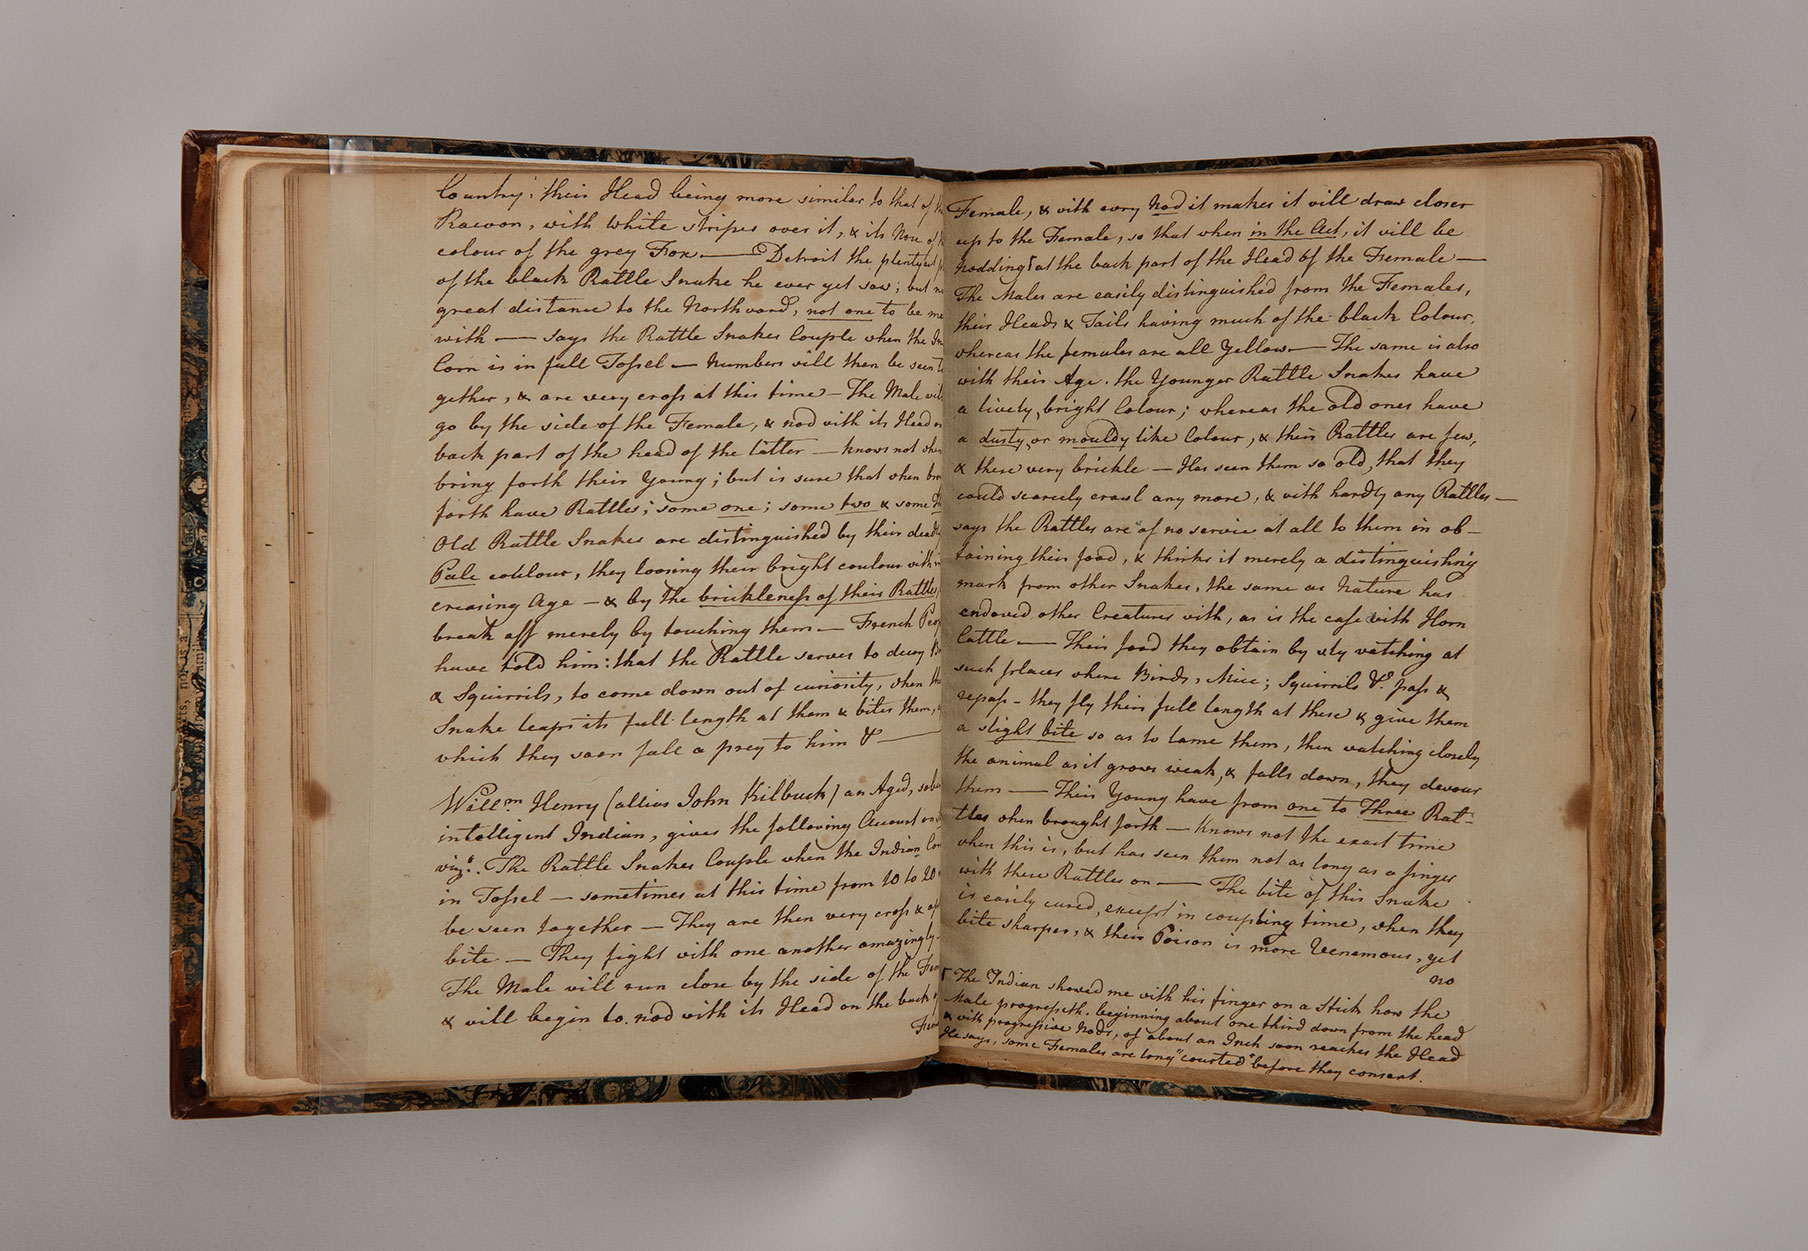 Country; their Head being more similar to that of
Racoon, with white stripes over it, & its Nose of
colour of the grey Fox. — Detroit the plentyest
of the black Rattle Snake he ever yet saw; but
great distance to the Northward, not one to be
with — says the Rattle Snakes Couple when the
Corn is in full Tossel — numbers will then be seen
gether, & are very cross at this time — The Male
go by the side of the Female, & nod with its Head
back part of the head of the latter — knows not
bring forth their Young; but is sure that when
forth have Rattles; some one; some two & some
Old Rattle Snakes are distinguished by their
Pale collour, they loosing their bright coulour
creasing Age — & by the brickleness of their Rattles
break off merely by touching them — French
have told him: that the Rattle serves to decoy
& Squirrils, to come down out of curiosity, when
Snake leaps its full length at them & bites them,
which they soon fall a prey to him & —
Willm Henry (allias John Kilbuck) an Aged,
intelligent Indian, gives the following Account
viz: The Rattle Snakes Couple when the Indian
in Tossel — sometimes at this time from 10 to 20
be seen together — They are then very cross &
bite — They fight with one another amazingly
The Male will run close by the side of the
& will begin to nod with its Head on the back
Female, & with every Nod it makes it will draw closer
up to the Female, so that when in the Act, it will be
nodding at the back part of the Head of the Female —
The Males are easily distinguished from the Females,
their Heads & Tails having much of the black Colour,
whereas the females are all Yellow — The same is also
with their Age. the Younger Rattle Snakes have
a lively, bright Colour; whereas the old ones have
a dusty, or mouldy like Colour, & their Rattles are few,
& these very brickle — Has seen them so old, that they
could scarcely crawl any more, & with hardly any Rattles —
says the Rattles are of no service at all to them in ob-
taining their food, & thinks it merely a distinguishing
mark from other Snakes, the same as Nature has
endowed other Creatures with, as is the case with Horn
Cattle — Their food they obtain by sly watching at
such places where Birds, Mice; Squirrils &c. pass &
repass - they fly their full length at these & give them
a slight bite so as to lame them, then watching closely
the animal as it grows weak, & falls down, they devour
them — Their Young have from one to Three Rat-
tles when brought forth — Knows not the exact time
when this is, but has seen them not as long as a finger
with these Rattles on — The bite of this Snake
is easily cured, except in coupling time, when they
bite sharper, & their Poison is more Venemous, yet
no
The Indian showed me with his finger on a Stick how the
Male progresseth. beginning about one third down from the head
& with progressive Nods, of about an Inch soon reaches the Head
He says, some Females are long "courted" before they consent.